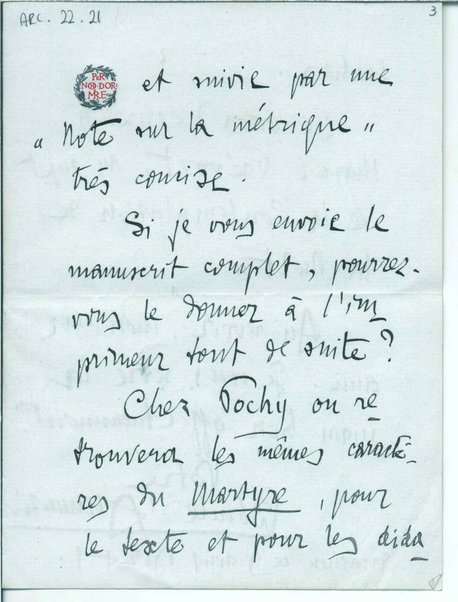 ARC. 22. 21
3
PER
NON DOR
MIRE
et suivie par une
« Note sur la métrique »
très concise.
Si je vous envoie le
manuscrit complet, pourrez-
vous le donner à l'im
primeur tout de suite?
Chez Pochy on re
trouvera les mêmes caractè-
res du Martyre, pour
le texte et pour les dida